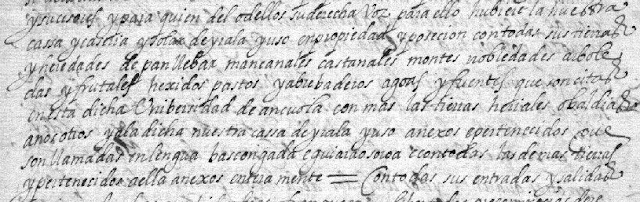 y suçesores y para quien del o dellos su derecha voz para ello hubiere la nuestra
cassa y caseria y solar de yrala yuso en propiedad y posesion con todas sus tierras
y heredades de pan llebar mançanales castanales montes nobledales arbole
das y frutales hexidos pastos y abrebaderos agoas y fuentes que son sitos
en esta dicha Unibersidad de ançuola con mas las tierras
andotios y a la dicha nuestra cassa de yrala yuso anexos e perteneçidos que
son llamadas en lengua bascongada e con todas las demas tierras
y perteneçidos a ella anexos entera mente = Con todas sus entradas y salidas